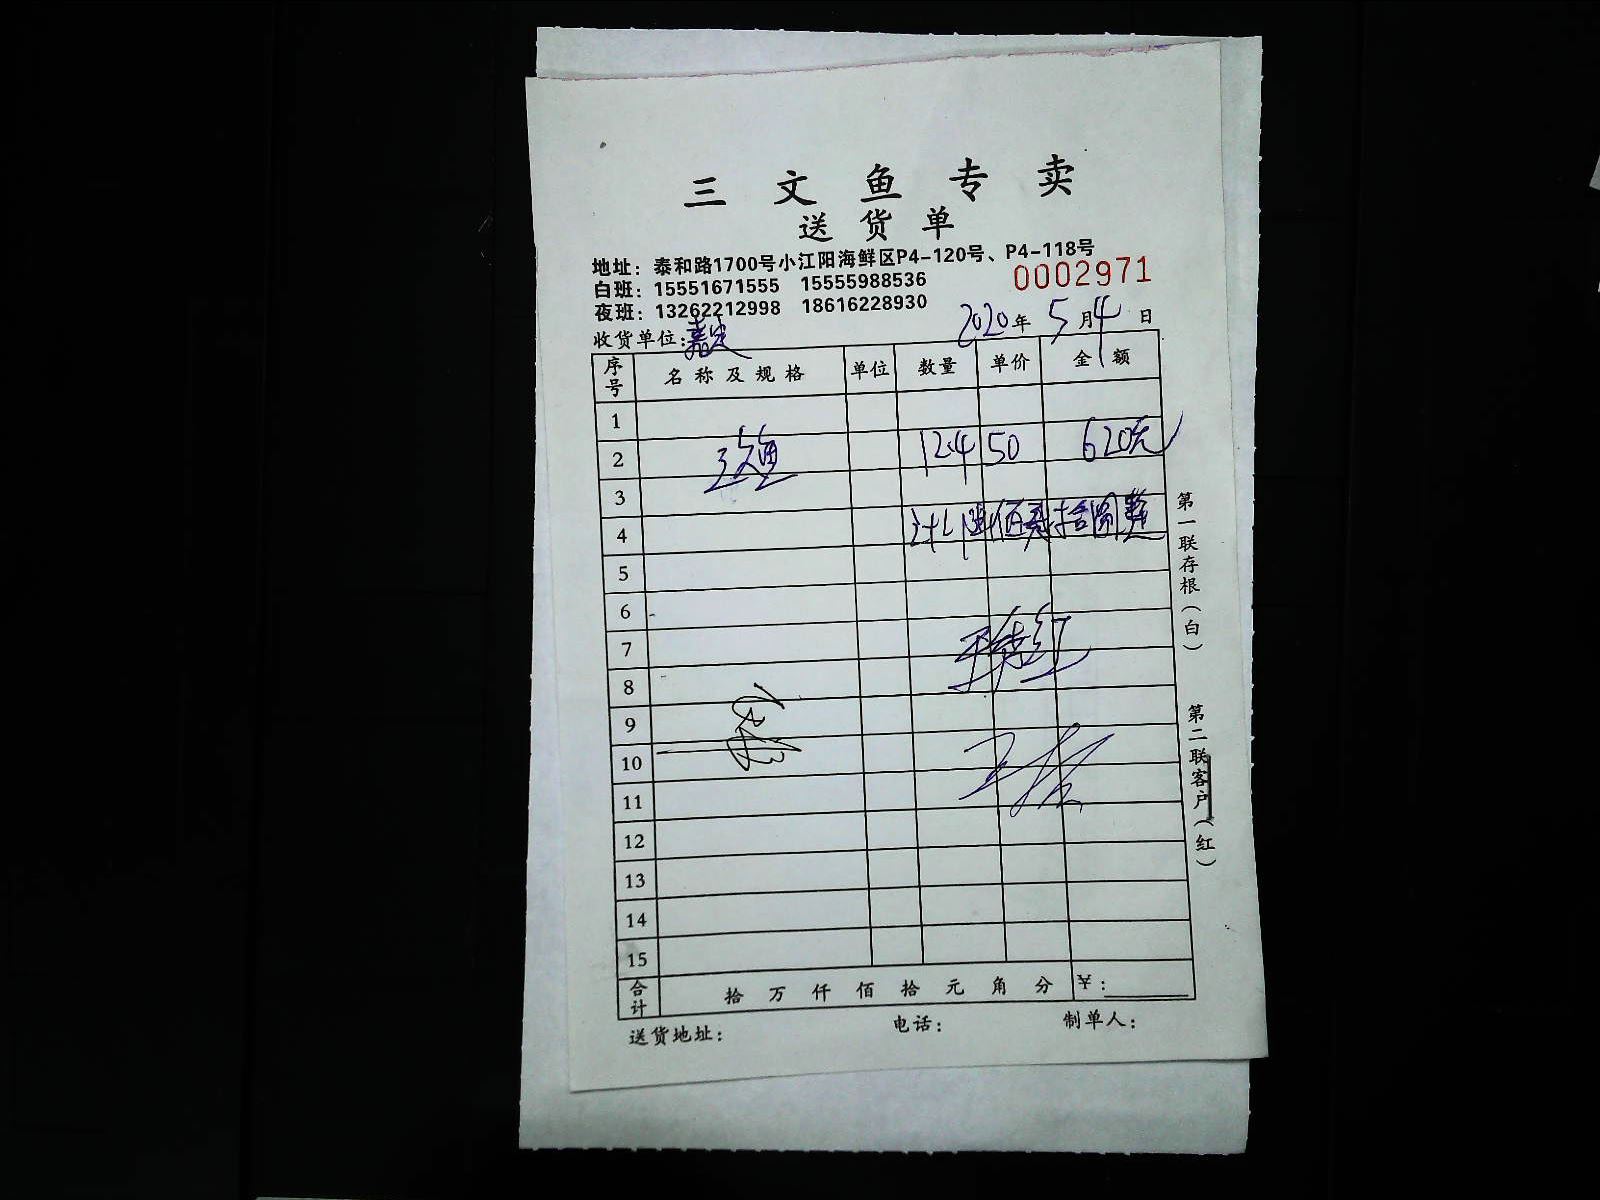 三文鱼专卖
送货单
地址：泰和路1700号小江阳海鲜区P4-120号、P4-118号
白班：15551671555 15555988536
0002971
夜班：13262212998 18616228930
2020年5月4日
收货单位：嘉定
序号 名称及规格 单位 数量 单价 金额
1
2 三文鱼 12.4 50 620元
3
4 计：陆佰贰拾圆整
5
6
7
8
9
10
11
12
13
14
15
合计 拾 万 仟 佰 拾 元 角 分 ¥：
送货地址： 电话： 制单人：
第一联存根（白）
第二联客户（红）